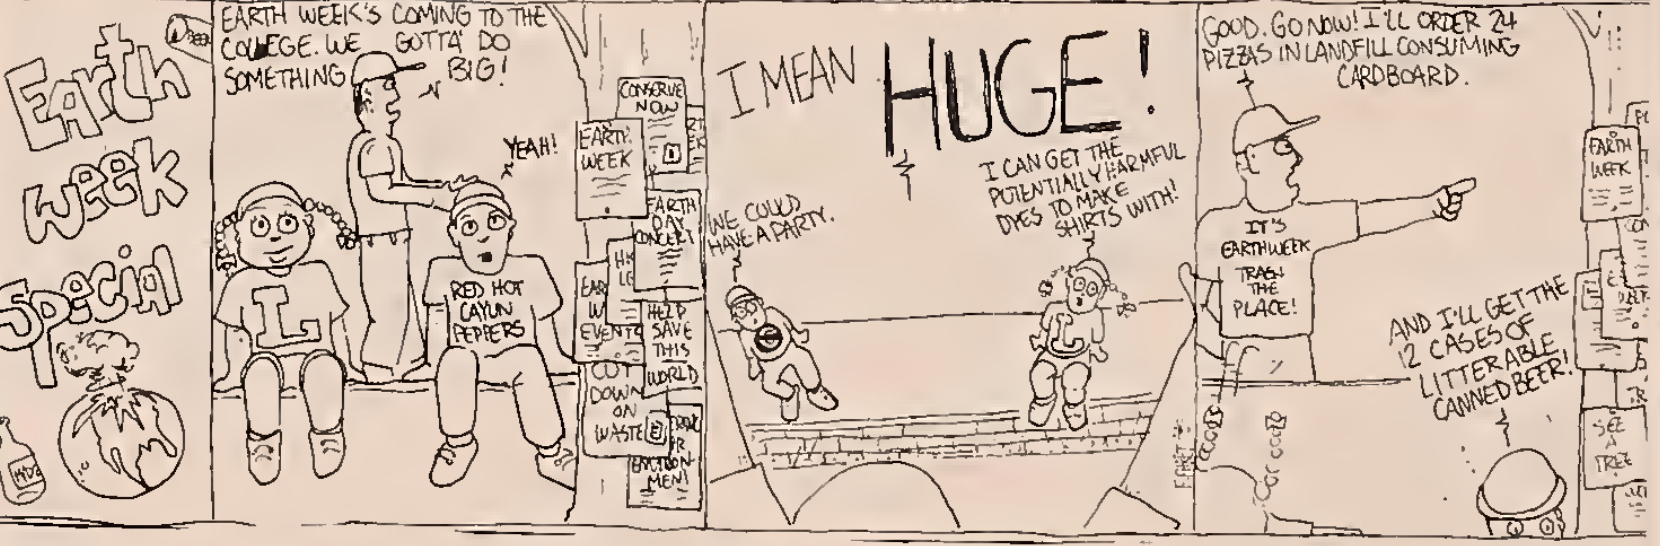 Earth
Week
Special
EARTH WEEK'S COMING TO THE
COLLEGE. WE GOTTA DO
SOMETHING BIG!
YEAH!
L
RED HOT
CAYUN
PEPPERS
CONSERVE
NOW
EARTH
WEEK
EARTH
DAY
CONCERT
EVENTS
HELP
SAVE
THIS
WORLD
CUT
DOWN
ON
WASTE
I MEAN HUGE!
WE COULD
HAVE A PARTY.
I CAN GET THE
POTENTIALLY HARMFUL
DYES TO MAKE
SHIRTS WITH!
L
GOOD. GO NOW! I'LL ORDER 24
PIZZAS IN LANDFILL CONSUMING
CARDBOARD.
IT'S
EARTHWEEK
TRASH
THE
PLACE!
AND I'LL GET THE
12 CASES OF
LITTERABLE
CANNED BEER!
EARTH
WEEK
SEE
A
TREE